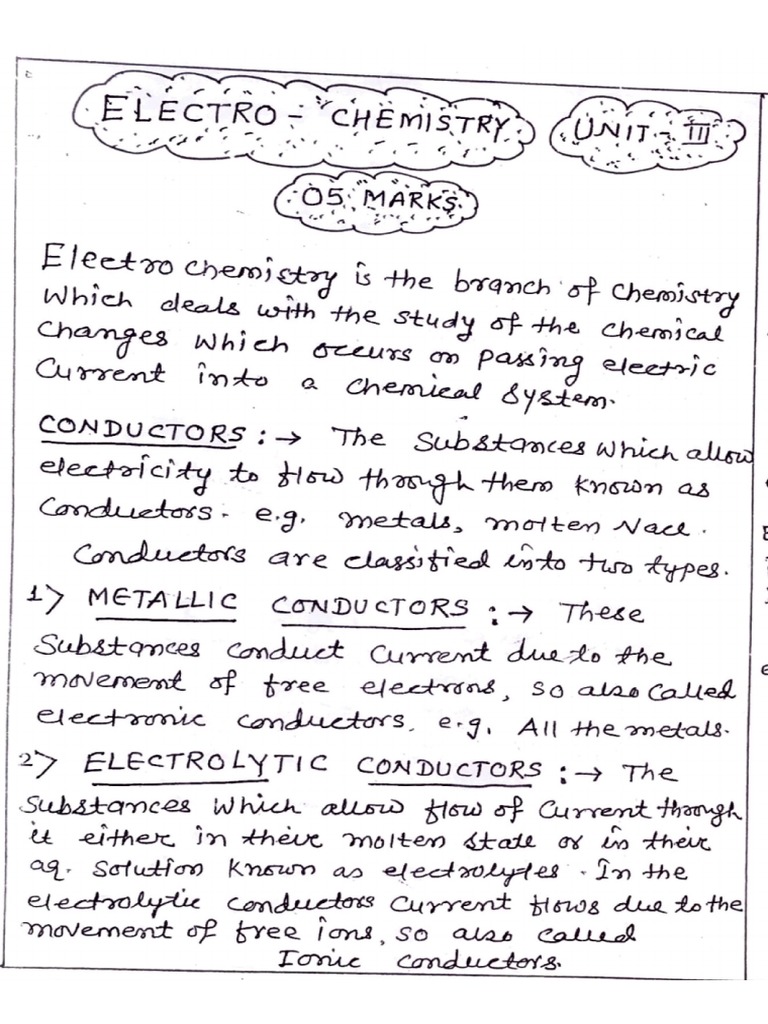 ELECTRO - CHEMISTRY UNIT - III
05 MARKS
Electro chemistry is the branch of chemistry
which deals with the study of the chemical
changes which occurs on passing electric
current into a chemical system.
CONDUCTORS : → The substances which allow
electricity to flow through them known as
conductors. e.g. metals, molten Nacl.
Conductors are classified into two types.
1> METALLIC CONDUCTORS : → These
substances conduct current due to the
movement of free electrons, so also called
electronic conductors. e.g. All the metals.
2> ELECTROLYTIC CONDUCTORS : → The
substances which allow flow of current through
it either in their molten state or in their
aq. solution known as electrolytes. In the
electrolytic conductors current flows due to the
movement of free ions, so also called
Ionic conductors.